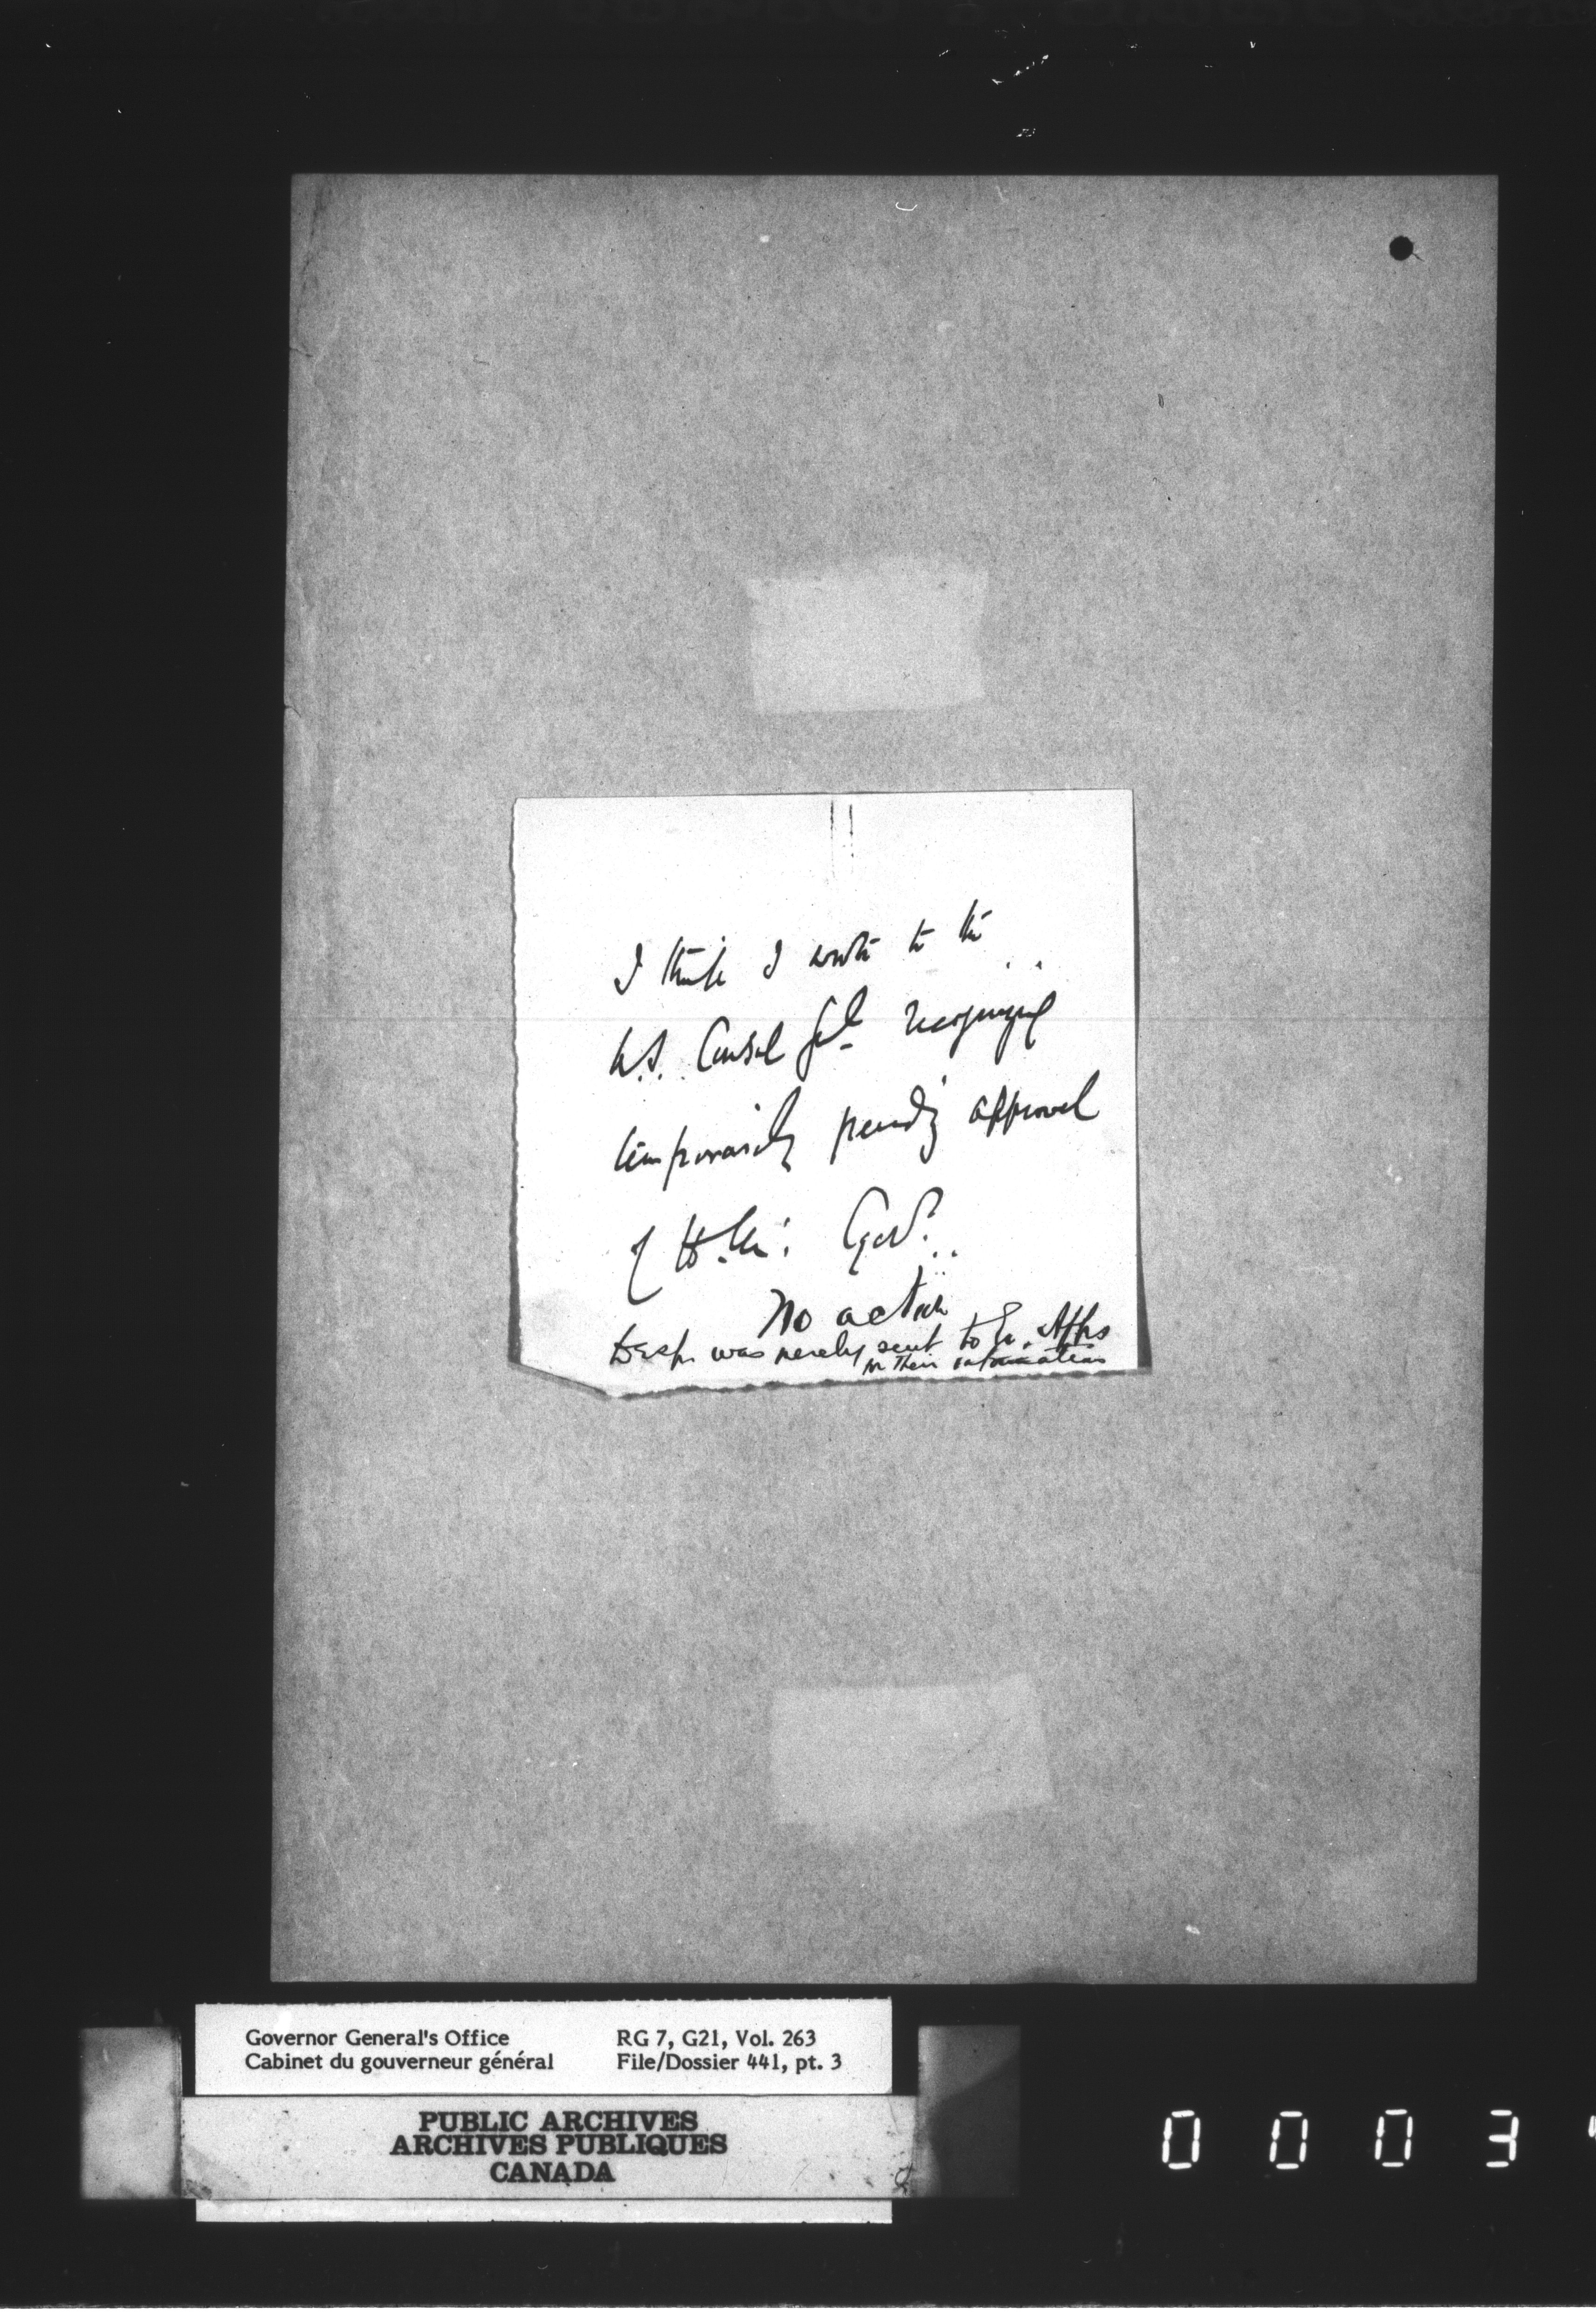 I think I write to the
U.S. Consul Genl. recognizing
temporarily pending approval
of H.M. Govt.
No action
Desp. was merely sent to Ex. Affrs
for their information
Governor General's Office
Cabinet du gouverneur général
RG 7, G21, Vol. 263
File/Dossier 441, pt. 3
PUBLIC ARCHIVES
ARCHIVES PUBLIQUES
CANADA
0 0 0 3